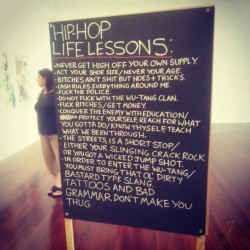 "HIPHOP
LIFE LESSONS:
•NEVER GET HIGH OFF YOUR OWN SUPPLY.
•ACT YOUR SHOE SIZE/NEVER YOUR AGE.
•BITCHES AIN'T SHIT BUT HOES + TRICKS.
•CASH RULES EVERYTHING AROUND ME.
•FUCK THE POLICE.
•DO NOT FUCK WITH THE WU-TANG CLAN.
•FUCK BITCHES/GET MONEY.
•CONQUER THE ENEMY WITH EDUCATION/
PROTECT YOURSELF, REACH FOR WHAT
YOU GOTTA DO/KNOW THYSELF, TEACH
WHAT WE BEEN THROUGH.
•THE STREETS, IS A SHORT STOP/
EITHER YOUR SLINGING CRACK ROCK
OR YOU GOT A WICKED JUMP SHOT.
•IN ORDER TO ENTER THE WU-TANG/
YOU MUST BRING THAT OL' DIRTY
BASTARD TYPE SLANG.
•TATTOOS AND BAD
GRAMMAR DON'T MAKE YOU
THUG.